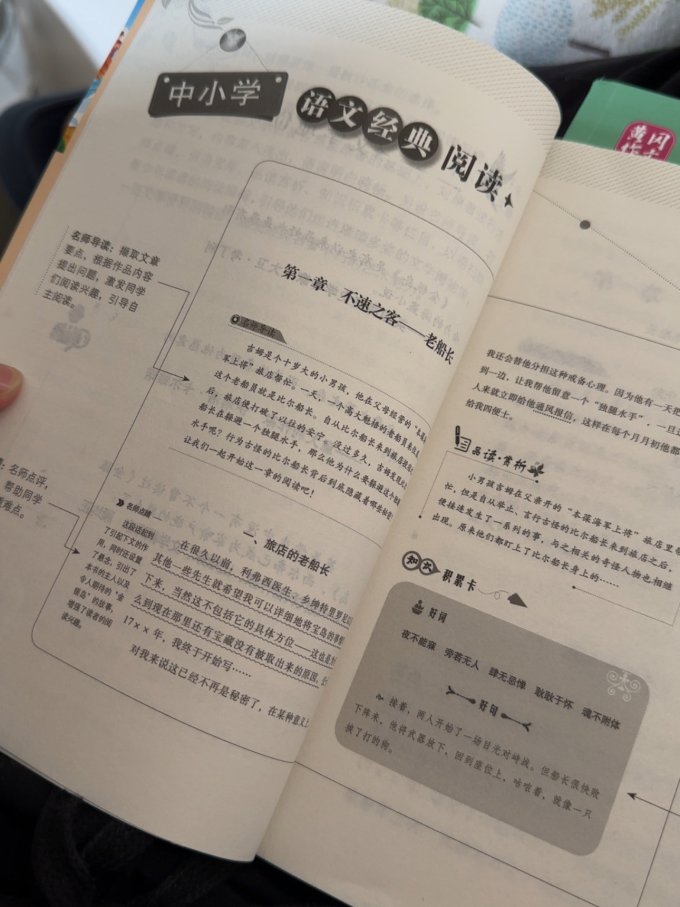 中小学
语文经典
阅读
名师导读：撷取文章
要点，根据作品内容
提出问题，激发同学
们阅读兴趣，引导自
主阅读。
第一章 不速之客——老船长
名师导读
吉姆是个十岁大的小男孩，他在父母经营的
军上将”旅店帮忙。一天，一个高大魁梧的老船员来
这个老船员就是比尔船长。自从比尔船长来到旅店
后，旅店便打破了以往的安宁。没过多久，吉姆发现
船长在躲避一个独腿水手，那么他为什么要躲避这个独腿
水手呢？行为古怪的比尔船长背后到底隐藏着哪些秘密
让我们一起开始这一章的阅读吧！
名师点评，
帮助同学
难点。
一、旅店的老船长
名师点睛
这段话起到
了引起下文的作
用，同时还设置
了悬念，引出了
本书的主人以及
令人期待的“金
银岛”的故事，
增强了读者的阅
读兴趣。
在很久以前，利弗西医生、乡绅特里罗尼以
其他一些先生就希望我可以详细地将宝岛的事情
下来，当然这不包括它的具体方位——这也是
么到现在那里还有宝藏没有被取出来的原因。
17××年，我终于开始写……
对我来说这已经不再是秘密了，在某种意义
黄冈
我还会替他分担这种戒备心理。因为他有一天把
到一边，让我帮他留意一个“独腿水手”，一旦
人来就立即给他通风报信，这样在每个月月初他都
给我四便士。
品读·赏析
小男孩吉姆在父亲开的“本葆海军上将”旅店里帮
忙，但是自从举止、言行古怪的比尔船长来到旅店之后，
便接连发生了一系列的事，与之相关的奇怪人物也相继
出现，原来他们都盯上了比尔船长身上的……
知识
积累卡
好词
夜不能寐 旁若无人 肆无忌惮 耿耿于怀 魂不附体
好句
接着，两人开始了一场目光对峙战。但船长很快败
下阵来，他将武器放下，回到座位上，咕哝着，就像一只
挨了打的狗。